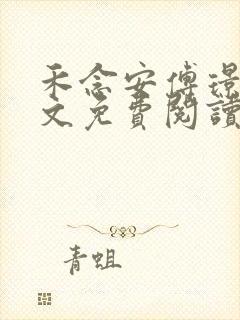 禾念安傅璟
文免費閱讀
青蛆